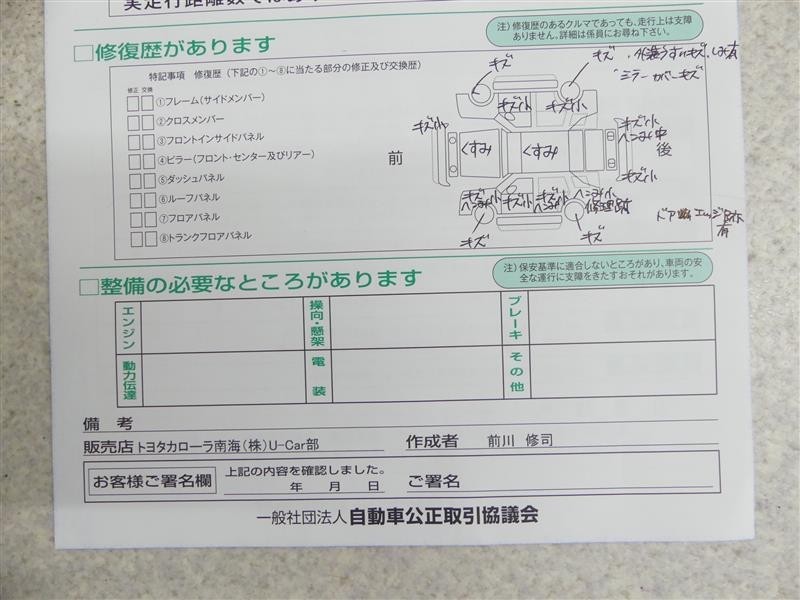 実走行距離数ではあり
注）修復歴のあるクルマであっても、走行上は支障
ありません。詳細は係員にお尋ね下さい。
□修復歴があります
特記事項　修復歴（下記の①～⑧に当たる部分の修正及び交換歴）
修正 交換
①フレーム（サイドメンバー）
②クロスメンバー
③フロントインサイドパネル
④ピラー（フロント・センター及びリアー）
⑤ダッシュパネル
⑥ルーフパネル
⑦フロアパネル
⑧トランクフロアパネル
前
後
キズ
キズ
ミラーカバーキズ
キズ小
キズ小
キズ小
キズ小
ヘコミ小
くすみ
くすみ
キズ小
キズ
ヘコミ小
キズ小
キズ小
ヘコミ小
ヘコミ小
修理跡
キズ
キズ
ドア
エッジ
有
□整備の必要なところがあります
注）保安基準に適合しないところがあり、車両の安
全な運行に支障をきたすおそれがあります。
エンジン
操向・懸架
ブレーキ
動力伝達
電装
その他
備　考
販売店 トヨタカローラ南海（株）U-Car部
作成者　前川　修司
お客様ご署名欄
上記の内容を確認しました。
年　月　日
ご署名
一般社団法人 自動車公正取引協議会